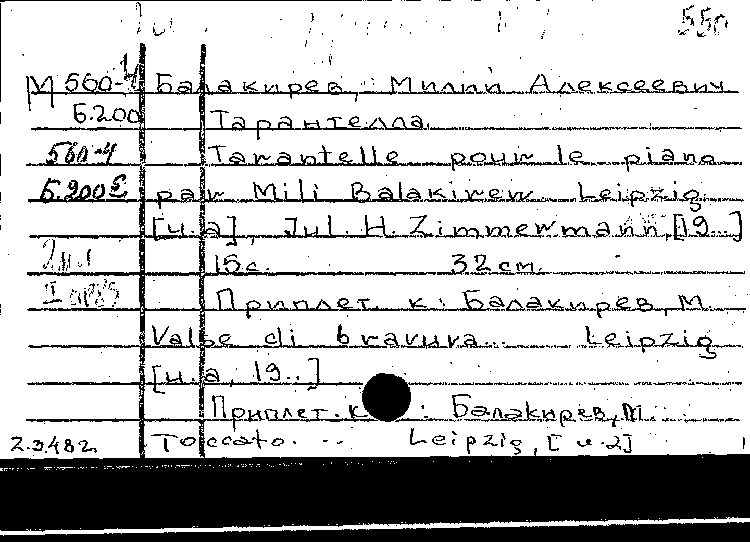 550
М 560-4 Балакирев, Милий Алексеевич
Б.200 Тарантелла.
560-4 Tarantelle pour le piano
Б.200 par Mili Balakirew Leipzig
[и.а], Jul. H. Zimmermann, [19..]
15с. 32 см.
Приплет. к: Балакирев, М.
Valse di bravura... Leipzig
[и.а, 19..]
Приплет. к : Балакирев, М.
2.3.482 Toccato. ... Leipzig, [и.а]